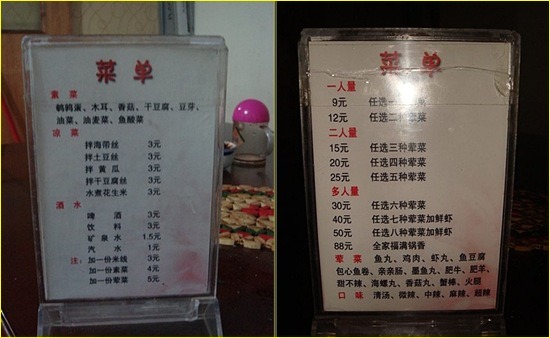 菜单
素菜
鹌鹑蛋、木耳、香菇、干豆腐、豆芽、
油菜、油麦菜、鱼酸菜
凉菜
拌海带丝 3元
拌土豆丝 3元
拌黄瓜 3元
拌干豆腐丝 3元
水煮花生米 3元
酒水
啤酒 3元
饮料 3元
矿泉水 1.5元
汽水 1元
注：加一份米线 3元
加一份素菜 4元
加一份荤菜 5元
菜单
一人量
9元 任选一种荤菜
12元 任选二种荤菜
二人量
15元 任选三种荤菜
20元 任选四种荤菜
25元 任选五种荤菜
多人量
30元 任选六种荤菜
40元 任选七种荤菜加鲜虾
50元 任选八种荤菜加鲜虾
88元 全家福满锅香
荤菜 鱼丸、鸡肉、虾丸、鱼豆腐
包心鱼卷、亲亲肠、墨鱼丸、肥牛、肥羊、
甜不辣、海螺丸、香菇丸、蟹棒、火腿
口味 清汤、微辣、中辣、麻辣、超辣